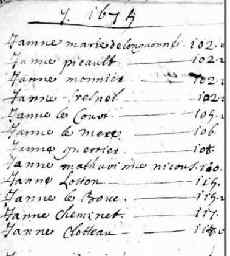 J. 1674
Janne marie de lonmonnf. 102.
Janne picault 102.
Janne monnier 102.
Janne fresnel 102.
Janne le Court 105.
Janne le mere 106
Janne guerrier 108.
Janne mathurinne nicous 110.
Janne Lotton 115.
Janne le Boue 115.
Janne Cheminet 117.
Janne Clotteau